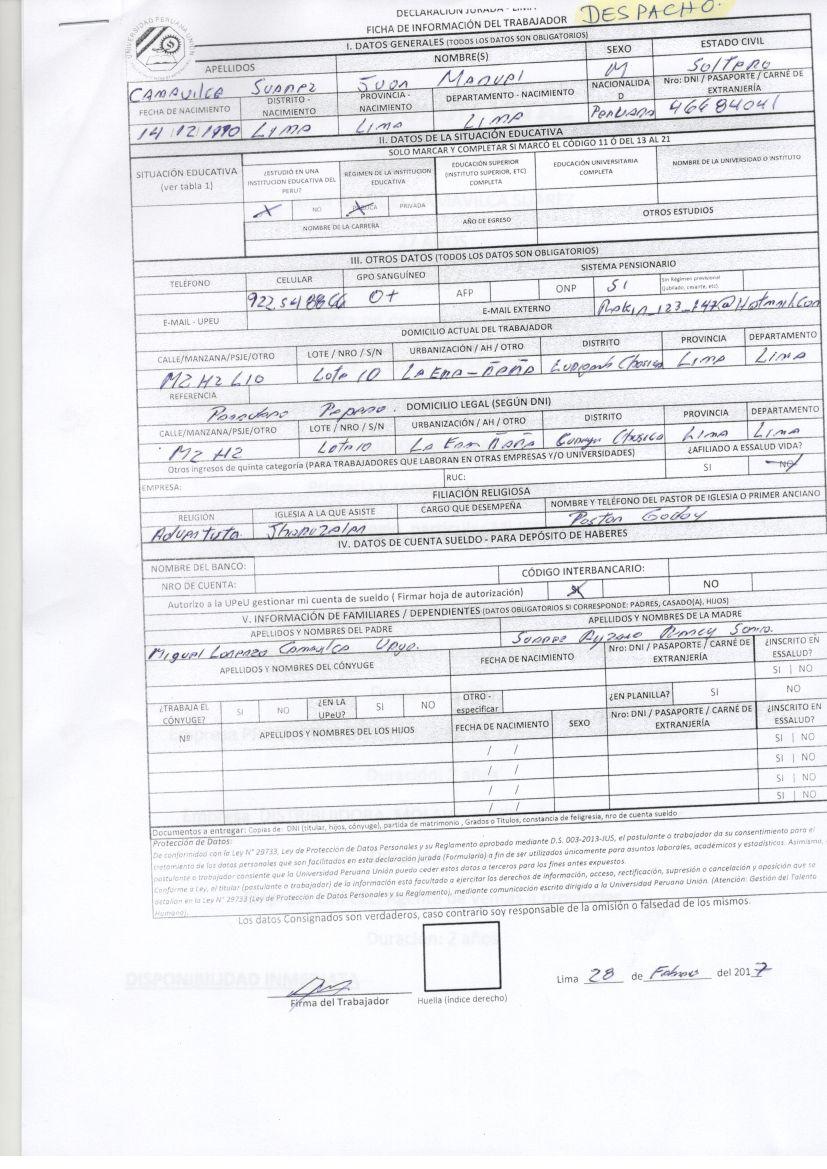 DECLARACIÓN JURADA - LIMA
FICHA DE INFORMACIÓN DEL TRABAJADOR DESPACHO.
UNIVERSIDAD PERUANA UNIÓN
I. DATOS GENERALES (TODOS LOS DATOS SON OBLIGATORIOS)
APELLIDOS NOMBRE(S) SEXO ESTADO CIVIL
CAMAVILCA SUAREZ JUAN MANUEL M SOLTERO
FECHA DE NACIMIENTO DISTRITO - NACIMIENTO PROVINCIA - NACIMIENTO DEPARTAMENTO - NACIMIENTO NACIONALIDAD Nro: DNI / PASAPORTE / CARNÉ DE EXTRANJERÍA
14/12/1990 LIMA LIMA LIMA Peruana 46684041
II. DATOS DE LA SITUACIÓN EDUCATIVA
SOLO MARCAR Y COMPLETAR SI MARCÓ EL CÓDIGO 11 Ó DEL 13 AL 21
SITUACIÓN EDUCATIVA (ver tabla 1) ¿ESTUDIÓ EN UNA INSTITUCION EDUCATIVA DEL PERU? RÉGIMEN DE LA INSTITUCION EDUCATIVA EDUCACIÓN SUPERIOR (INSTITUTO SUPERIOR, ETC) COMPLETA EDUCACIÓN UNIVERSITARIA COMPLETA NOMBRE DE LA UNIVERSIDAD O INSTITUTO
X NO X PRIVADA
NOMBRE DE LA CARRERA AÑO DE EGRESO OTROS ESTUDIOS
III. OTROS DATOS (TODOS LOS DATOS SON OBLIGATORIOS)
TELÉFONO CELULAR GPO SANGUÍNEO SISTEMA PENSIONARIO
922548866 O+ AFP ONP SI Sin Régimen previsional (jubilado, cesante, etc).
E-MAIL - UPEU E-MAIL EXTERNO
DOMICILIO ACTUAL DEL TRABAJADOR
CALLE/MANZANA/PSJE/OTRO LOTE / NRO / S/N URBANIZACIÓN / AH / OTRO DISTRITO PROVINCIA DEPARTAMENTO
MZ H2 L10 Lote 10 LA ERA - ÑAÑA Lurigancho Chosica LIMA LIMA
REFERENCIA
DOMICILIO LEGAL (SEGÚN DNI)
CALLE/MANZANA/PSJE/OTRO LOTE / NRO / S/N URBANIZACIÓN / AH / OTRO DISTRITO PROVINCIA DEPARTAMENTO
MZ H2 Lote 10 LA ERA ÑAÑA Chosica LIMA LIMA
Otros ingresos de quinta categoría (PARA TRABAJADORES QUE LABORAN EN OTRAS EMPRESAS Y/O UNIVERSIDADES) ¿AFILIADO A ESSALUD VIDA?
EMPRESA: RUC: SI NO
FILIACIÓN RELIGIOSA
RELIGIÓN IGLESIA A LA QUE ASISTE CARGO QUE DESEMPEÑA NOMBRE Y TELÉFONO DEL PASTOR DE IGLESIA O PRIMER ANCIANO
Pastor Godoy
IV. DATOS DE CUENTA SUELDO - PARA DEPÓSITO DE HABERES
NOMBRE DEL BANCO: CÓDIGO INTERBANCARIO:
NRO DE CUENTA:
Autorizo a la UPeU gestionar mi cuenta de sueldo ( Firmar hoja de autorización) SI NO
V. INFORMACIÓN DE FAMILIARES / DEPENDIENTES (DATOS OBLIGATORIOS SI CORRESPONDE: PADRES, CASADO(A), HIJOS)
APELLIDOS Y NOMBRES DEL PADRE APELLIDOS Y NOMBRES DE LA MADRE
Miguel Lorenzo Camavilca
APELLIDOS Y NOMBRES DEL CÓNYUGE FECHA DE NACIMIENTO Nro: DNI / PASAPORTE / CARNÉ DE EXTRANJERÍA ¿INSCRITO EN ESSALUD?
SI | NO
¿TRABAJA EL CÓNYUGE? SI NO ¿EN LA UPeU? SI NO OTRO - especificar ¿EN PLANILLA? SI NO
Nº APELLIDOS Y NOMBRES DEL LOS HIJOS FECHA DE NACIMIENTO SEXO Nro: DNI / PASAPORTE / CARNÉ DE EXTRANJERÍA ¿INSCRITO EN ESSALUD?
/ / SI | NO
/ / SI | NO
/ / SI | NO
/ / SI | NO
Documentos a entregar: Copias de: DNI (titular, hijos, cónyuge), partida de matrimonio , Grados o Títulos, constancia de feligresia, nro de cuenta sueldo
Protección de Datos:
De conformidad con la Ley N° 29733, Ley de Protección de Datos Personales y su Reglamento aprobado mediante D.S. 003-2013-JUS, el postulante o trabajador da su consentimiento para el
tratamiento de los datos personales que son facilitados en esta declaración jurada (Formulario) a fin de ser utilizados únicamente para asuntos laborales, académicos y estadísticos. Asimismo,
postulante o trabajador consiente que la Universidad Peruana Unión pueda ceder estos datos a terceros para los fines antes expuestos.
Conforme a Ley, el titular (postulante o trabajador) de la información está facultado a ejercitar los derechos de información, acceso, rectificación, supresión o cancelación y oposición que se
detallan en la Ley N° 29733 (Ley de Protección de Datos Personales y su Reglamento), mediante comunicación escrito dirigido a la Universidad Peruana Unión. (Atención: Gestión del Talento
Humano).
Los datos Consignados son verdaderos, caso contrario soy responsable de la omisión o falsedad de los mismos.
Duración: 2 años
DISPONIBILIDAD INMEDIATA
Lima 28 de Febrero del 2017
Firma del Trabajador Huella (índice derecho)